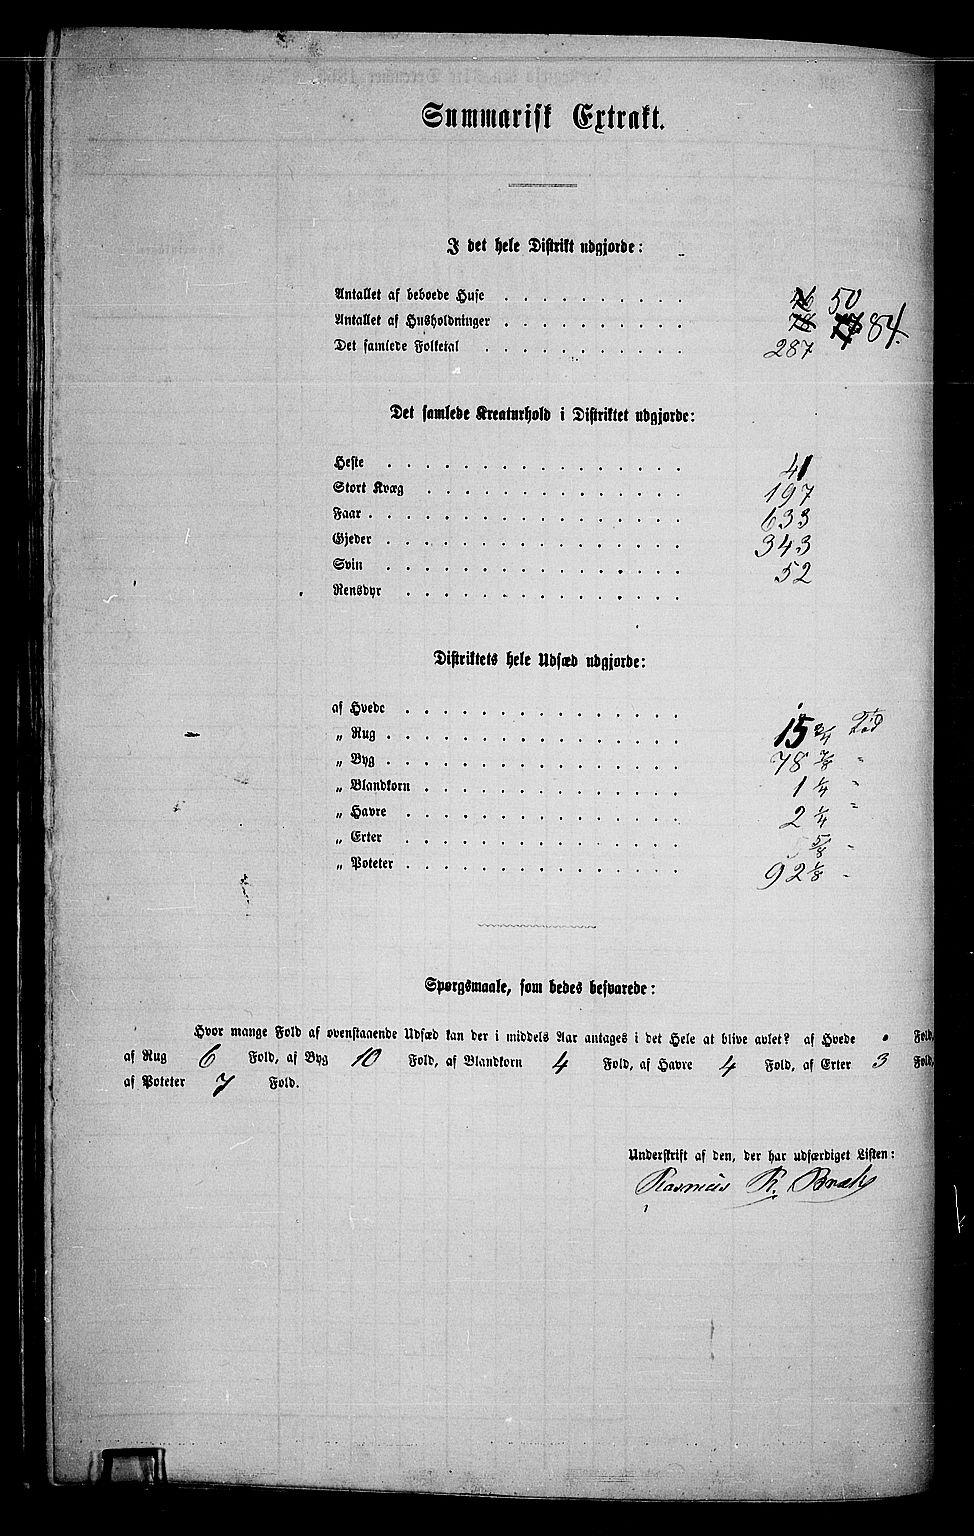 Summarisk Extrakt.
I det hele Distrikt udgjorde:
Antallet af beboede Huse . . . . . . . . . . 50
Antallet af Husholdninger . . . . . . . . . . 78 84.
Det samlede Folketal . . . . . . . . . . . 287
Det samlede Kreaturhold i Distriktet udgjorde:
Heste . . . . . . . . . . . . . . . . 41
Stort Kvæg . . . . . . . . . . . . . . 197
Faar . . . . . . . . . . . . . . . . . 633
Gjeder . . . . . . . . . . . . . . . . 343
Svin . . . . . . . . . . . . . . . . 52
Rensdyr . . . . . . . . . . . . . . .
Distriktets hele Udsæd udgjorde:
af Hvede . . . . . . . . . . . . . . .
„ Rug . . . . . . . . . . . . . . . . 15 3/4 Tød
„ Byg . . . . . . . . . . . . . . . . 78 7/8 "
„ Blandkorn . . . . . . . . . . . . . . 1 1/4 "
„ Havre . . . . . . . . . . . . . . . 2 1/4 "
„ Erter . . . . . . . . . . . . . . . 5/8 "
„ Poteter . . . . . . . . . . . . . . . 92 1/8 "
Spørgsmaale, som bedes besvarede:
Hvor mange Fold af ovenstaaende Udsæd kan der i middels Aar antages i det Hele at blive avlet? af Hvede • Fold,
af Rug 6 Fold, af Byg 10 Fold, af Blandkorn 4 Fold, af Havre 4 Fold, af Erter 3 Fold,
af Poteter 7 Fold.
Underskrift af den, der har udfærdiget Listen:
Rasmus R.